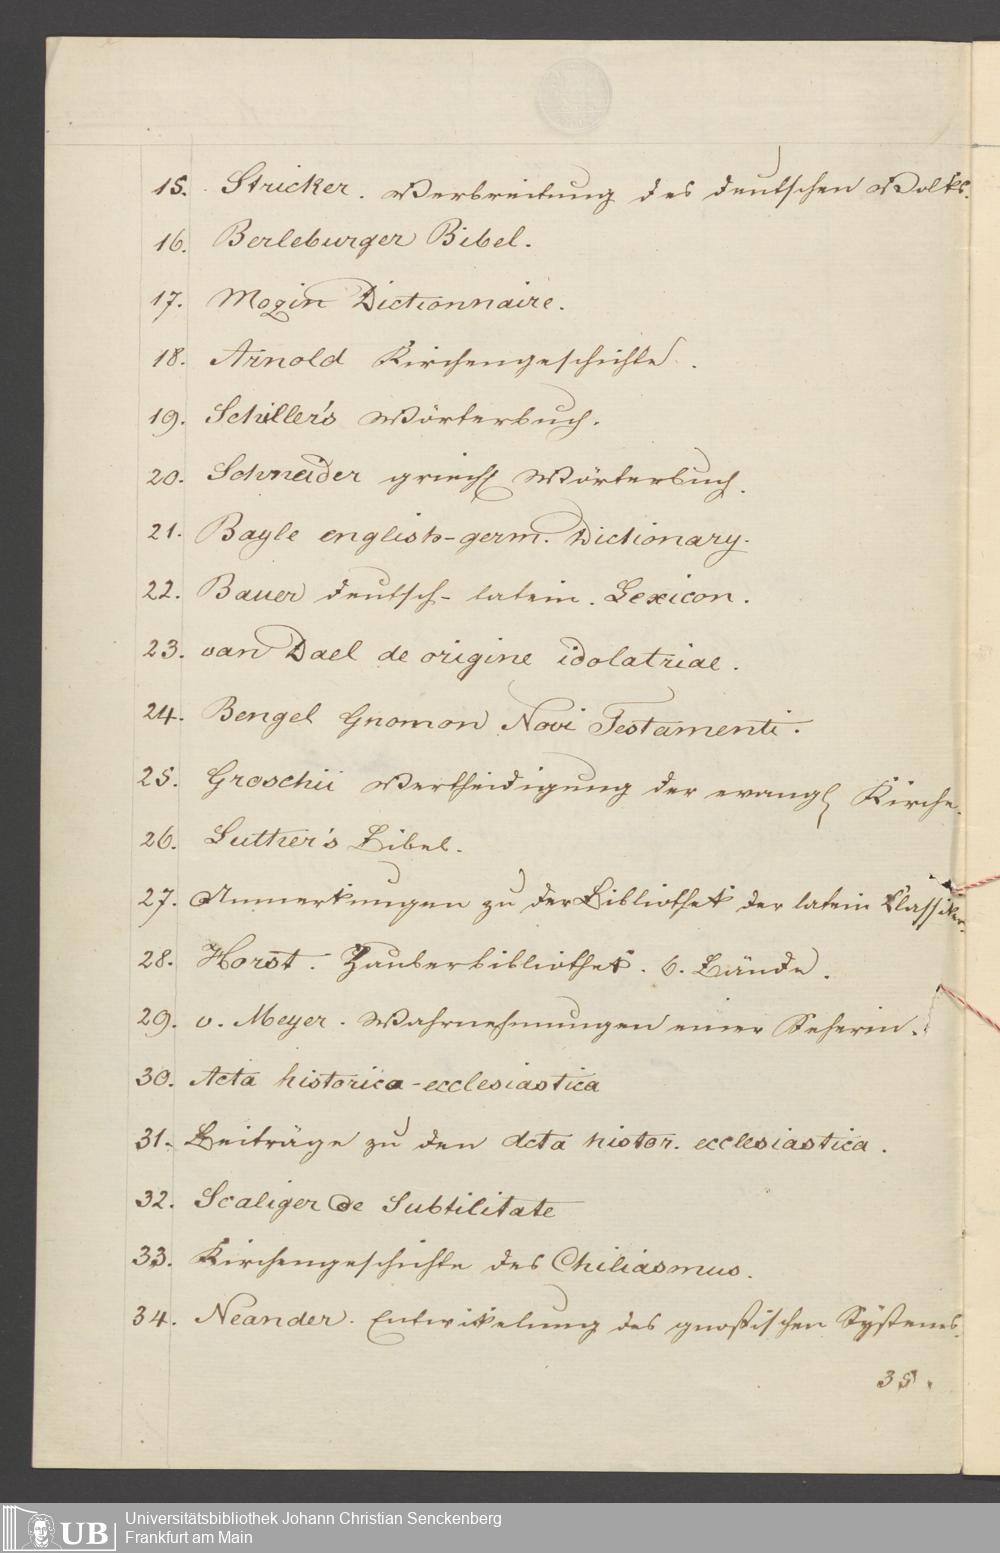 15. Stricker. Verbreitung des deutschen Volks.
16. Berleburger Bibel.
17. Mozin Dictionnaire.
18. Arnold Kirchengeschichte.
19. Schiller's Wörterbuch.
20. Schneider griech Wörterbuch.
21. Bayle english-germ. Dictionary.
22. Bauer deutsch-latein. Lexicon.
23. van Dael de origine idolatriae.
24. Bengel Gnomon Novi Testamenti.
25. Groschii Vertheidigung der evangl Kirche.
26. Luther's Bibel.
27. Anmerkungen zu der Bibliothek der latein Classiker.
28. Horst. Zauberbibliothek. 6. Bände.
29. v. Meyer. Wahrnehmungen einer Seherin.
30. Acta historica-ecclesiastica
31. Beiträge zu den Acta histor. ecclesiastica.
32. Scaliger de Subtilitate
33. Kirchengeschichte des Chiliasmus.
34. Neander. Entwikelung des gnostischen Systems.
35.
UB
Universitätsbibliothek Johann Christian Senckenberg
Frankfurt am Main